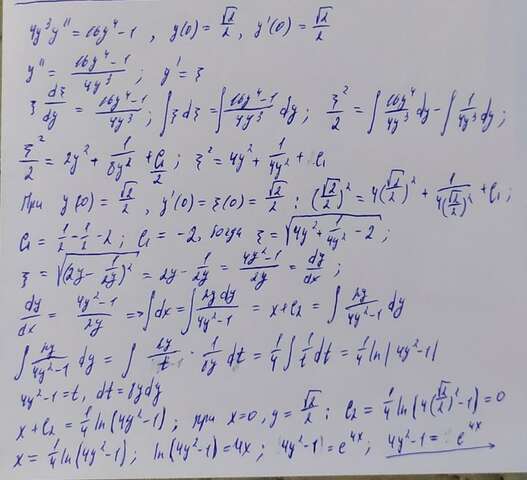 4y³y'' = 16y⁴-1 , y(0) = √2/2 , y'(0) = √2/2
y'' = (16y⁴-1)/(4y³) ; y' = ξ
ξ dξ/dy = (16y⁴-1)/(4y³) ; ∫ξdξ = ∫(16y⁴-1)/(4y³) dy ; ξ²/2 = ∫16y⁴/(4y³) dy - ∫1/(4y³) dy ;
ξ²/2 = 2y² + 1/(8y²) + C₁/2 ; ξ² = 4y² + 1/(4y²) + C₁
При y(0) = √2/2 , y'(0) = ξ(0) = √2/2 : (√2/2)² = 4(√2/2)² + 1/(4(√2/2)²) + C₁ ;
C₁ = 1/2 - 1/2 - 2 ; C₁ = -2. Тогда ξ = √(4y² + 1/(4y²) - 2) ;
ξ = √((2y - 1/(2y))²) = 2y - 1/(2y) = (4y²-1)/(2y) = dy/dx ;
dy/dx = (4y²-1)/(2y) => ∫dx = ∫2ydy/(4y²-1) = x + C₂ = ∫2y/(4y²-1) dy
∫2y/(4y²-1) dy = ∫2y/t · 1/(8y) dt = 1/4 ∫1/t dt = 1/4 ln|4y²-1|
4y²-1 = t, dt = 8ydy
x + C₂ = 1/4 ln(4y²-1) ; при x=0, y = √2/2 : C₂ = 1/4 ln(4(√2/2)²-1) = 0
x = 1/4 ln(4y²-1) ; ln(4y²-1) = 4x ; 4y²-1 = e⁴ˣ ; 4y²-1 = e⁴ˣ